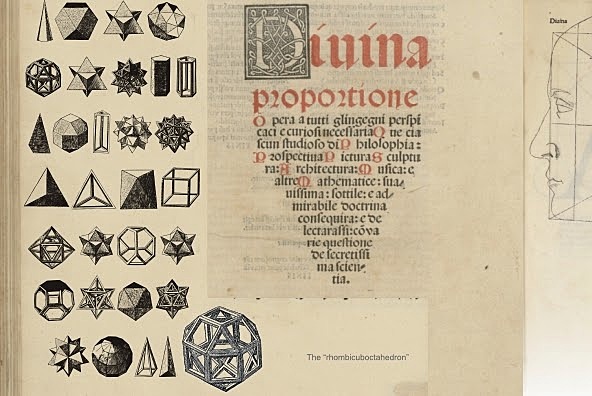 Diuina
proportione
Opera a tutti glingegni perspi
caci e curiosi necessaria Oue cia
scun studioso di Philosophia:
Prospectiua Pictura Sculptu
ra: Architectura: Musica: e
altre Mathematice: sua-
uissima: sottile: e ad-
mirabile doctrina
consequira: e de
lectarassi: cõva
rie questione
de secretissi
ma scien-
tia.
The "rhombicuboctahedron"
Diuina